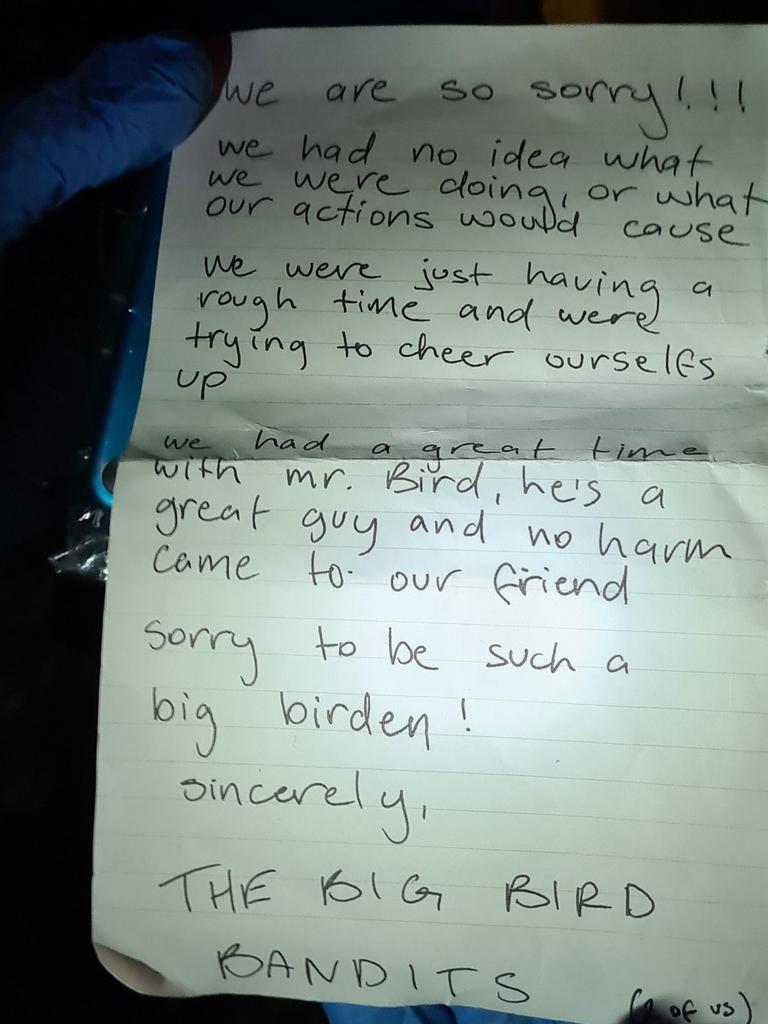 we are so sorry!!!
we had no idea what
we were doing, or what
our actions would cause
we were just having a
rough time and were
trying to cheer ourselfs
up
we had a great time
with mr. Bird, he's a
great guy and no harm
came to our friend
sorry to be such a
big birden!
sincerely,
THE BIG BIRD
BANDITS
(2 of us)